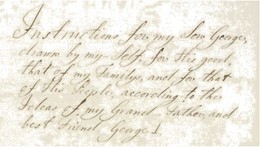 Instructions for my Son George,
drawn by my-Self, for His good,
that of my Family, and for that
of His People, according to the
Ideas of my Grand-Father, and
best Friend, George I.